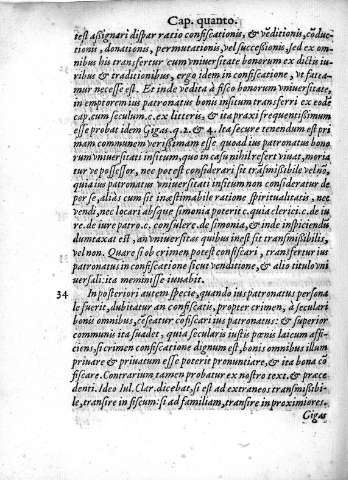 Cap. quanto.
test assignari dispar ratio confiscationis, & vēditionis, cōductionis
, donationis, permutationis, vel successionis, sed ex omnibus
his transfertur cum vniuersitate bonorum ex dictis iuribus
& traditionibus, ergo idem in confiscatione, vt fateamur
necesse est. Et inde vēdita à fisco bonorum vniuersitate,
in emptorem ius patronatus bonis insitum transferri ex eodē
cap. cum seculum. c. ex litteris, & ita praxi frequentissimum
esse probat idem Gigas. q. 2. & 4. Ita secure tenendum est primam
communem verissimam esse. quoad ius patronatus bonorum
vniuersitati insitum, quo in casu nihil refert viuat, moriatur
ve possessor, nec potest considerari sit trāsmissibile vel nō,
quia ius patronatus vniuersitati insitum non consideratur de
per se, aliàs cum sit inæstimabile ratione spiritualitatis, nec
vendi, nec locari absque simonia poterit c. quia clerici. c. de iure.
de iure patro. c. consulere. de simonia, & inde inspiciendū
dumtaxat est, an vniuersitas quibus inest sit transmissibilis,
vel non. Quare si ob crimen potest confiscari, transfertur ius
patronatus in confiscatione sicut venditione, & alio titulo vniuersali:
ita meminisse iuuabit.
34 In posteriori autem specie, quando ius patronatus personale
fuerit, dubitatur an confiscatis, propter crimen, à seculari
bonis omnibus, cēseatur cōfiscari ius patronatus: & superior
communis ita suadet, quia secularis iustis pœnis laicum afficiens,
si crimen confiscatione dignum est, bonis omnibus illum
priuare & priuatum esse poterit pronuntiare, & ita bona cōfiscare.
Contrarium tamen probatur ex nostro text. & præcedenti.
Ideo Iul. Clar. dicebat, si est ad extraneos transmissibile,
transire in fiscum: si ad familiam, transire in proximiores.
Gigas